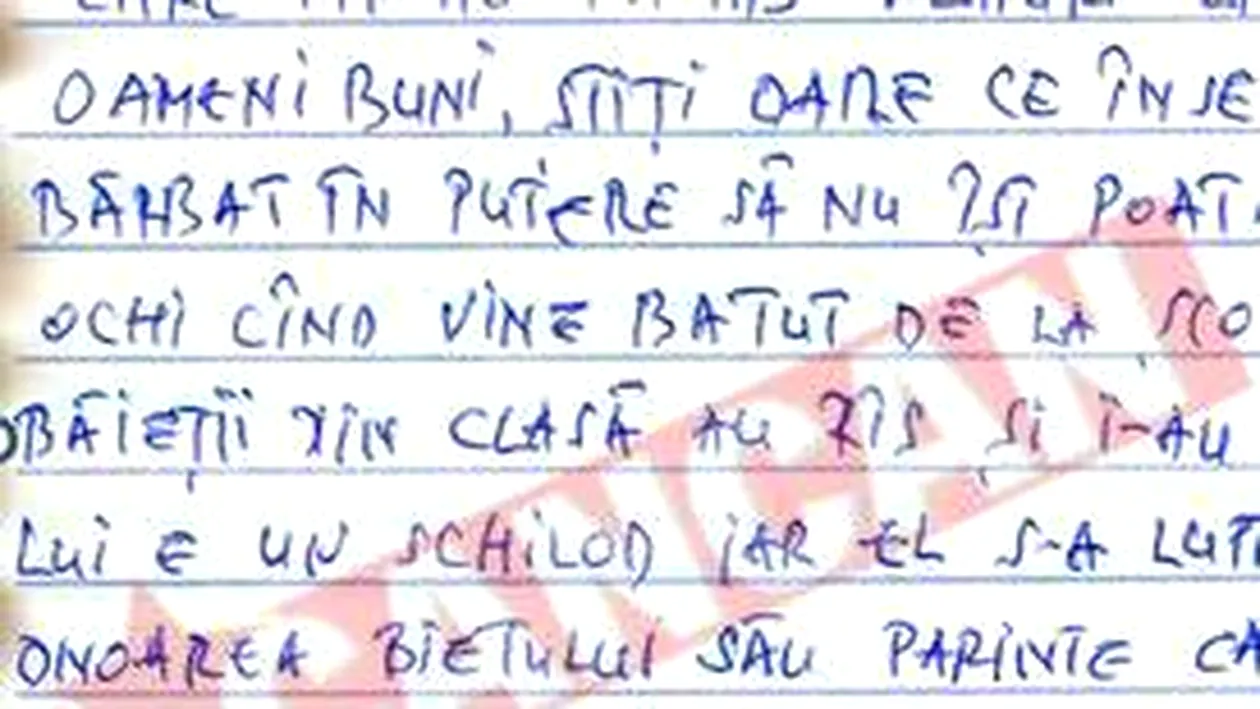 OAMENI BUNI, STIȚI OARE CE ÎNSE
BĂRBAT ÎN PUTERE SĂ NU ÎȘI POAT
OCHI CÎND VINE BĂTUT DE LA ȘCO
BĂIEȚII DIN CLASĂ AU RÎS ȘI I-AU
LUI E UN SCHILOD IAR EL S-A LUT
ONOAREA BIETULUI SĂU PARINTE CA